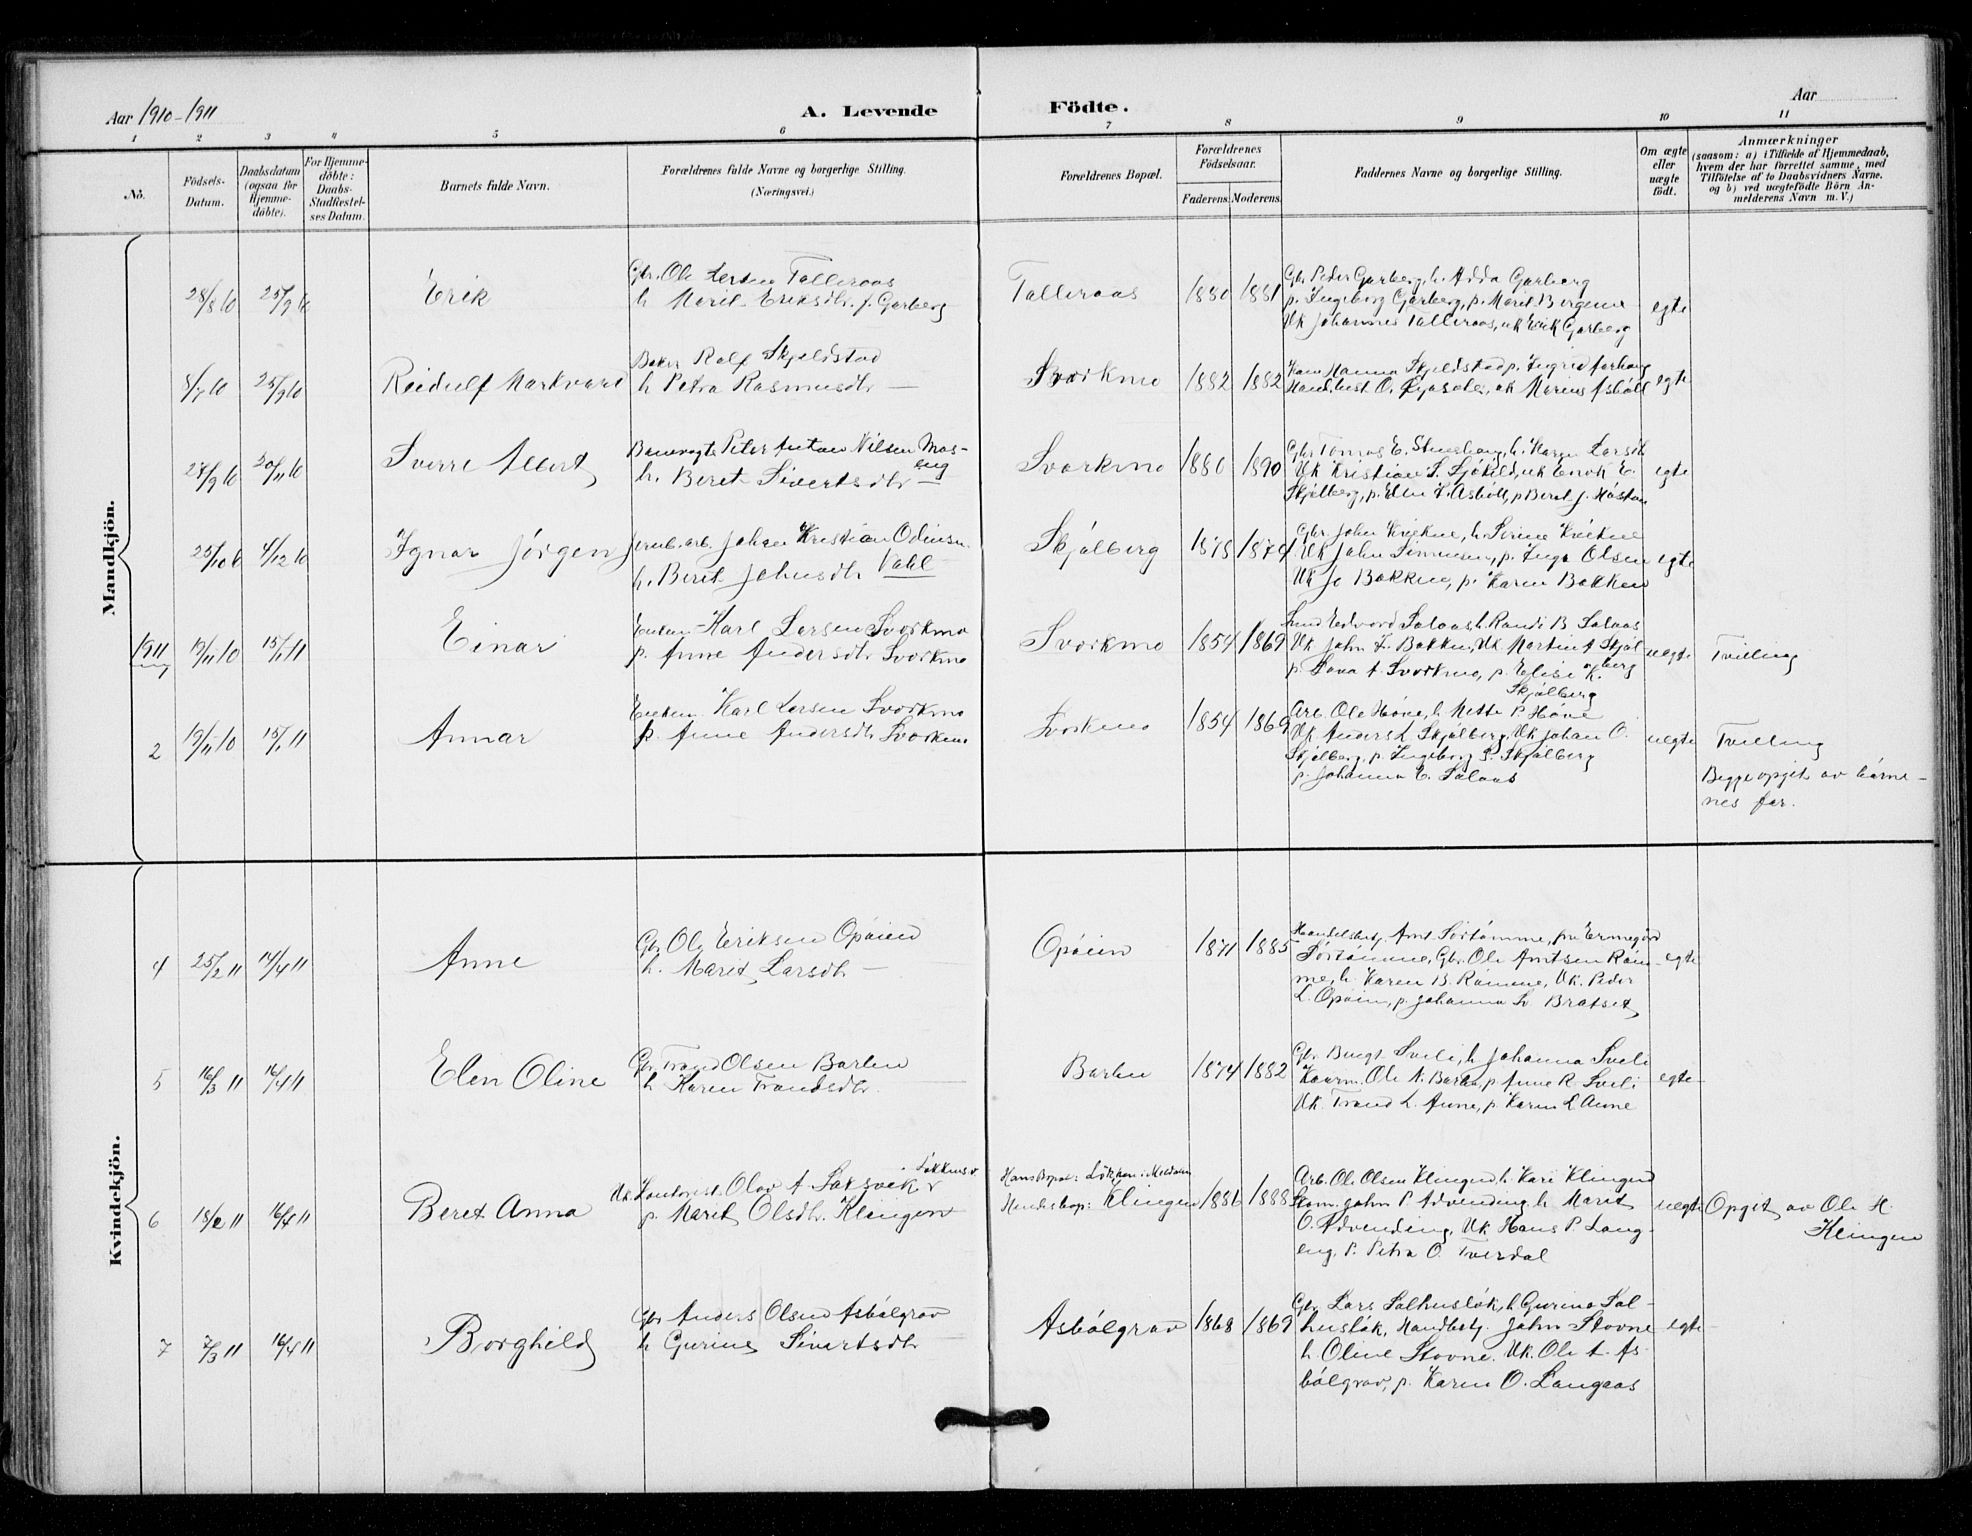 Aar 1910-1911
A. Levende
Födte.
Aar
1 2 3 4 5 6 7 8 9 10 11
No.
Födsels-Datum.
Daabsdatum (ogsaa for Hjemme-döbte).
For Hjemme-döbte: Daabs-Stadfæstel-ses Datum.
Barnets fulde Navn.
Forældrenes fulde Navne og borgerlige Stilling. (Næringsvei.)
Forældrenes Bopæl.
Forældrenes Födselsaar.
Faderens. Moderens.
Faddernes Navne og borgerlige Stilling.
Om ægte eller uægte födt.
Anmærkninger
(saasom: a) i Tilfælde af Hjemmedaab,
hvem der har forrettet samme, med
Tilföielse af to Daabsvidners Navne,
og b) ved uægtefödte Börn An-
melderens Navn m. V.)
Mandkjön.
28/8 10 25/9 10 Erik
Gbr. Ole Talleraas
h. Marit Eriksdtr. f. Garberg
Talleraas 1880 1881
Gbr Peder Garberg, h. Adda Garberg
p. Ingeborg Garberg, p. Marit
Uk Johannes Talleraas, uk Erik Garberg
egte
25/9 10
Baker Rolf Skjeldstad
h Petra Rasmusdtr
Svorkmo 1882 1882
Hanna Skjeldstad p. Ingrid
uk Marius Asböll
egte
27/9 10 20/11 10 Sverre Albert
Banevogt Peter Anton Nilsen Mos-
eng
h. Beret Sivertsdtr
Svorkmo 1880 1890
Gbr Tomas E. h. Karen Larsdtr
Uk Kristian S. uk Enok E.
Skjölberg, p. Elen Asböll, p Beret J.
egte
25/10 10 4/12 10 Jörgen
Jernb. arb. Johan Kristian Odinsen
Vahl
h. Beret Johnsdtr
Skjölberg 1878 1879
Gbr. John Kvikne, h. Serine Kvikne
Uk John p. Inga Olsen
Uk Jo Bakken, p. Karen Bakken
egte
1911
19/11 10 15/1 11 Einar
Enkem Karl Larsen Svorkmo
p. Anne Andersdtr Svorkmo
Svorkmo 1854 1869
Edvard Solaas h. Randi B Solaas
Uk John Bakken, Uk Martin A Skjöl
berg
p. A Svorkmo, p. Elise K.
Skjölberg
uegte
Tvilling
2 19/11 10 15/1 11 Annar
Enkem Karl Larsen Svorkmo
p. Anne Andersdtr Svorkmo
Svorkmo 1854 1869
Arb. Ole Höve, h. Mette P. Höve
Uk Anders L Skjölberg, Uk Johan O.
Skjölberg, p. Ingeborg Skjölberg
p. Johanna E. Solaas
uegte
Tvilling
Begge opgit av barne-
nes far.
Kvindekjön.
4 25/2 11 14/4 11 Anne
Gbr Ole Eriksen Opöien
h. Marit Larsdtr
Opöien 1871 1885
Handelsbetj. Arnt Sörtömme,
Sörtömme, Gbr. Ole Arntsen Röm-
me, h. Karen B. Römme, Uk. Peder
L. Opöien, p. Johanna Bratset
egte
5 16/3 11 16/4 11 Elen Oline
Gbr Trond Olsen Barlen
h. Karen Trondsdtr.
Barlen 1874 1882
Gbr Bengt Sveli, h. Johanna Sveli
Kaarm. Ole N. Barlen, p Anne R Sveli
Uk. Trond L. Aune, p. Karen L Aune
egte
6 16/4 11 Beret Anna
Uk. Olav A. Saksvik
p. Marit Olsdtr. Klingen
Hans Bopæl: Lökken i Meldalen
Hendes bop: Klingen 1886 1888
Arb. Ole Olsen Klingen h. Kari Klingen
John P Advending h Marit
O. Advending, Uk Hans P Lang-
eng, p. Petra O. Tverdal
uegte
Opgit av Ole H.
Klingen
7 7/3 11 16/4 11 Borghild
Gbr Anders Olsen Asbölgrav
h Gurine Sivertsdtr
Asbölgrav 1868 1869
Gbr Lars Solhuslök, h. Gurine Sol-
huslök, Handbetj. John Stovne
h. Oline Stovne. Uk. Ole A. As-
bölgrav, p. Karen O. Langaas
egte